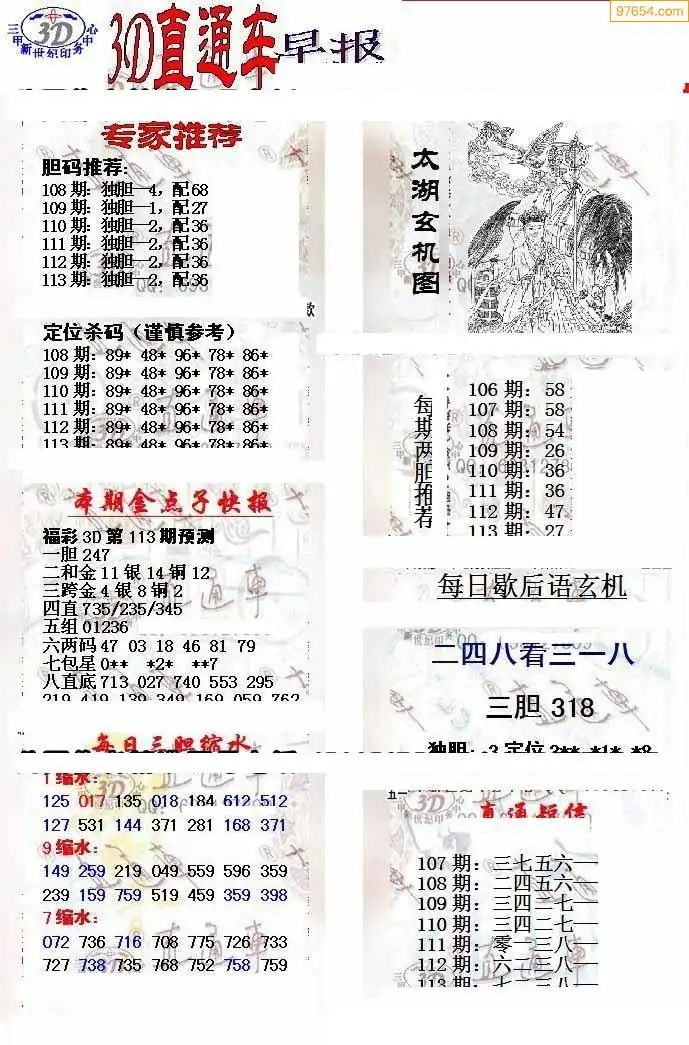 97654.com
三甲 3D 中心
新世纪印务
3D直通车早报
专家推荐
胆码推荐:
108期: 独胆—4, 配68
109期: 独胆—1, 配27
110期: 独胆—2, 配36
111期: 独胆—2, 配36
112期: 独胆—2, 配36
113期: 独胆—2, 配36
定位杀码（谨慎参考）
108期: 89* 48* 96* 78* 86*
109期: 89* 48* 96* 78* 86*
110期: 89* 48* 96* 78* 86*
111期: 89* 48* 96* 78* 86*
112期: 89* 48* 96* 78* 86*
113期: 89* 48* 96* 78* 86*
本期金点子快报
福彩3D第113期预测
一胆247
二和金11银14铜12
三跨金4银8铜2
四直735/235/345
五组01236
六两码47 03 18 46 81 79
七包星0** *2* **7
八直底713 027 740 553 295
219 419 139 349 169 059 762
每日三胆缩水
1缩水:
125 017 135 018 184 612 512
127 531 144 371 281 168 371
9缩水:
149 259 219 049 559 596 359
239 159 759 519 459 359 398
7缩水:
072 736 716 708 775 726 733
727 738 735 768 752 758 759
太湖玄机图
每期两胆推荐
106期: 58
107期: 58
108期: 54
109期: 26
110期: 36
111期: 36
112期: 47
113期: 27
每日歇后语玄机
二四八看三一八
三胆 318
独胆: 3 定位 3** *1* *8
直通短信
107期: 三七五六一
108期: 二四五六一
109期: 三四二七一
110期: 三四二七一
111期: 零一三八一
112期: 六一三八一
113期: 七二三八一